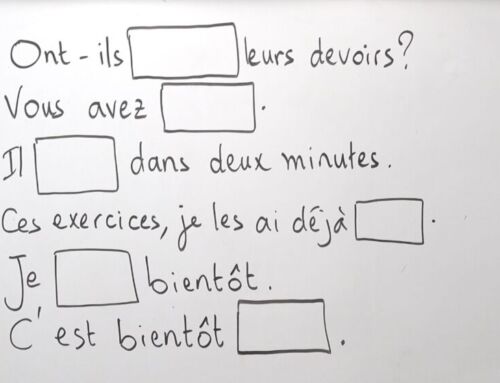 Ont-ils leurs devoirs?
Vous avez .
Il dans deux minutes.
Ces exercices, je les ai déjà .
Je bientôt.
C'est bientôt .